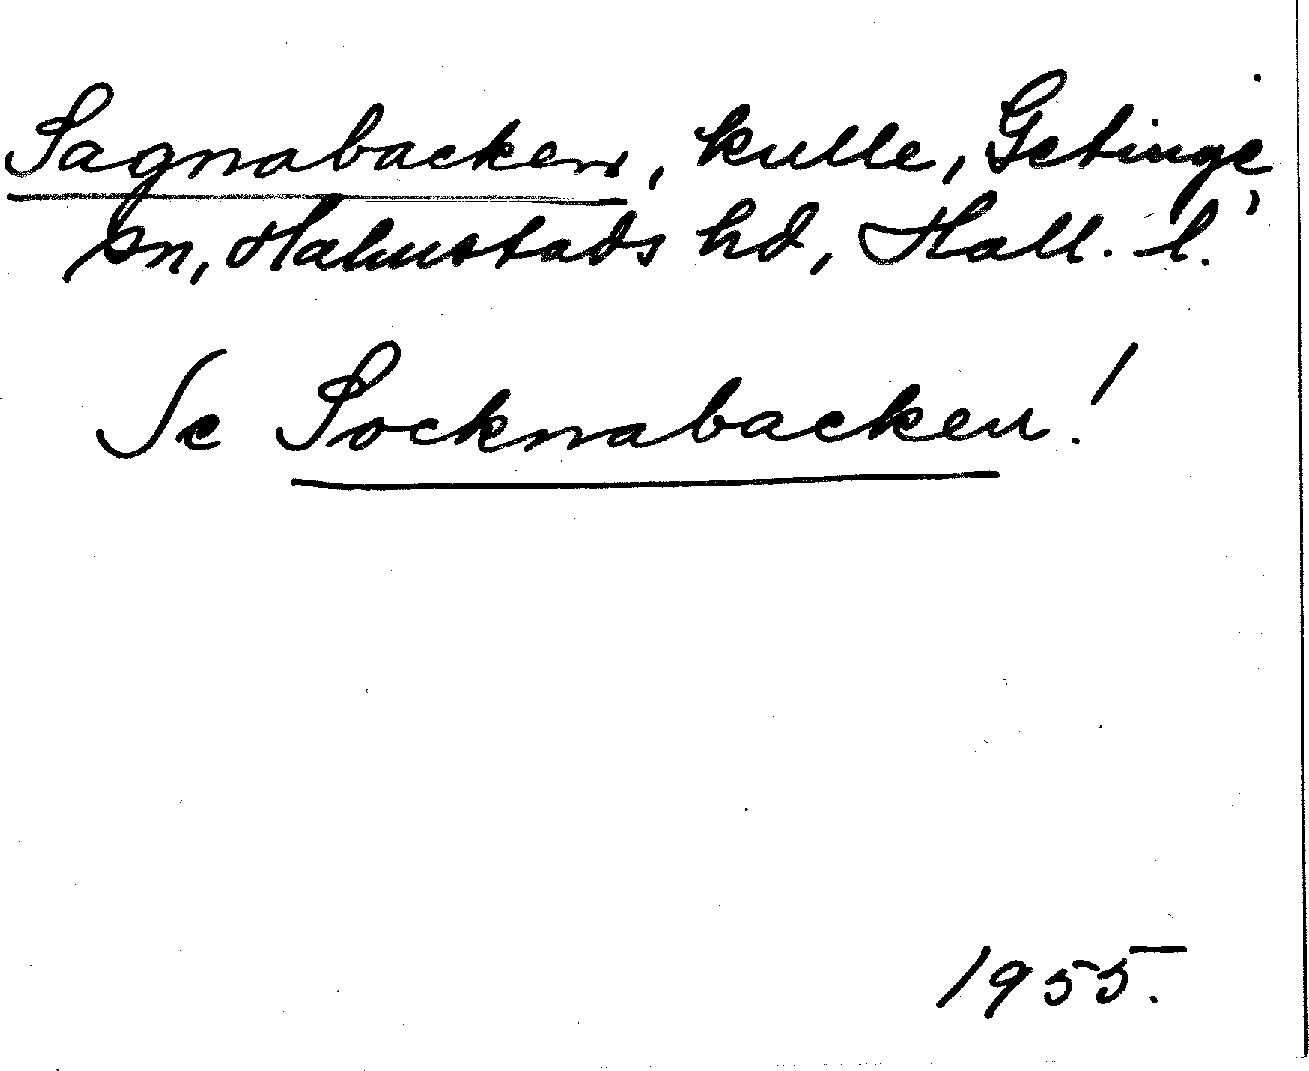 Sagnabacken, kulle, Getinge
sn, Halmstads hd, Hall. l.
Se Socknabacken!
1955.